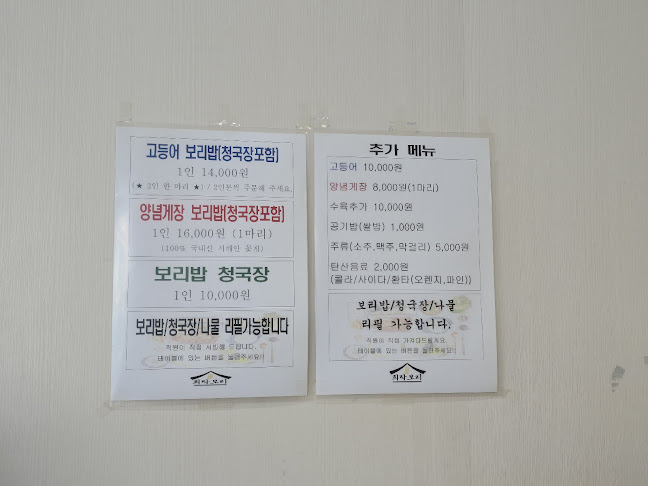 고등어 보리밥(청국장포함)
1인 14,000원
(★ 2인 한 마리 ★) / 2인분씩 주문해 주세요.
양념게장 보리밥(청국장포함)
1인 16,000원 (1마리)
(100% 국내산 서해안 꽃게)
보리밥 청국장
1인 10,000원
보리밥/청국장/나물 리필가능합니다
직원이 직접 서빙해 드립니다.
테이블에 있는 버튼을 눌러주세요!!
추가 메뉴
고등어 10,000원
양념게장 8,000원(1마리)
수육추가 10,000원
공기밥(쌀밥) 1,000원
주류(소주,맥주,막걸리) 5,000원
탄산음료 2,000원
(콜라/사이다/환타(오렌지,파인))
보리밥/청국장/나물
리필 가능합니다.
직원이 직접 가져다드릴게요.
테이블에 있는 버튼을 눌러주세요!!